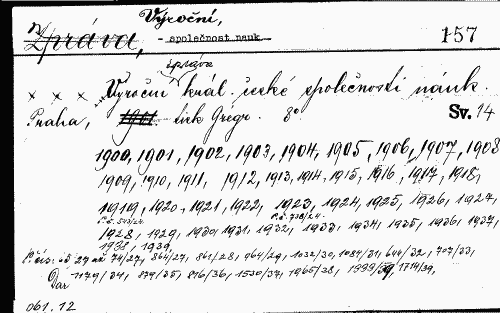 Zpráva, Výroční,
- společnost nauk.
157
zpráva
x x x ... Výroční král. české společnosti náuk.
Praha, 1901. tisk Grégr. 8° Sv. 14
1900, 1901, 1902, 1903, 1904, 1905, 1906, 1907, 1908
1909, 1910, 1911, 1912, 1913, 1914, 1915, 1916, 1917, 1918,
1919, 1920, 1921, 1922, 1923, 1924, 1925, 1926, 1927,
1928, 1929, 1930, 1931, 1932, 1933, 1934, 1935, 1936, 1937,
1938, 1939,
74/27, 864/27, 861/28, 964/29, 1032/30, 1084/31, 644/32, 707/33,
Dar 1179/34, 879/35, 816/36, 1530/37, 1965/38, 1999/39, 1714/39,
061.12